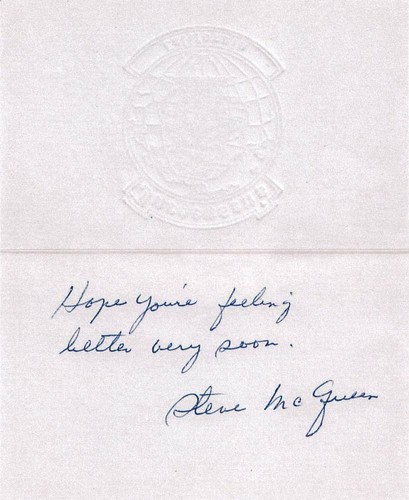 Hope you're feeling
better very soon.
Steve McQueen